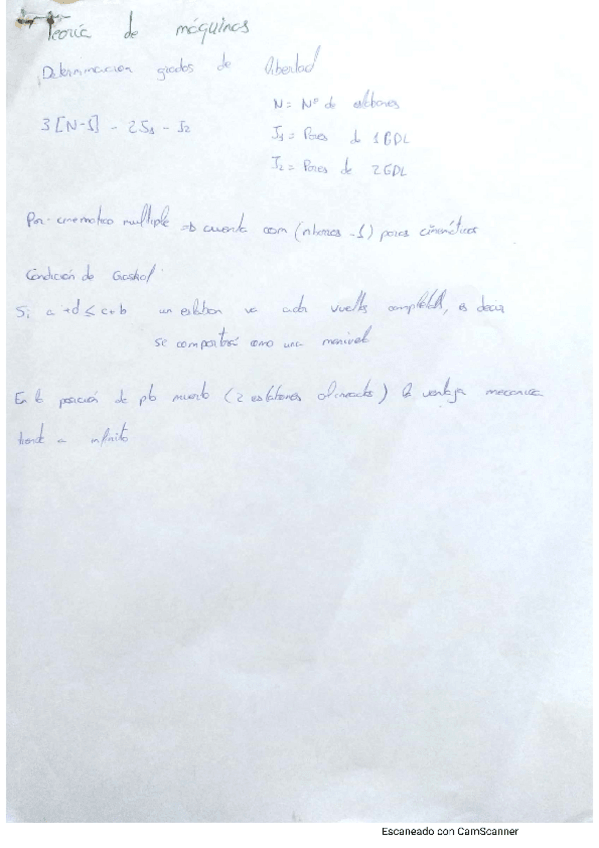 Teoría de máquinas
Determinacion grados de libertad
N = Nº de eslabones
3[N-1] - 2J1 - J2
J1 = Pares de 1GDL
J2 = Pares de 2GDL
Par cinematico multiple => cuenta com (nbarras -1) pares cinemáticos
Condición de Grashof
Si a+d ≤ c+b un eslabon va a dar vueltas completas, es decir
se comportará como una manivela
En la posición de pto muerto (2 eslabones alineados) la ventaja mecanica
tiende a infinito
Escaneado con CamScanner